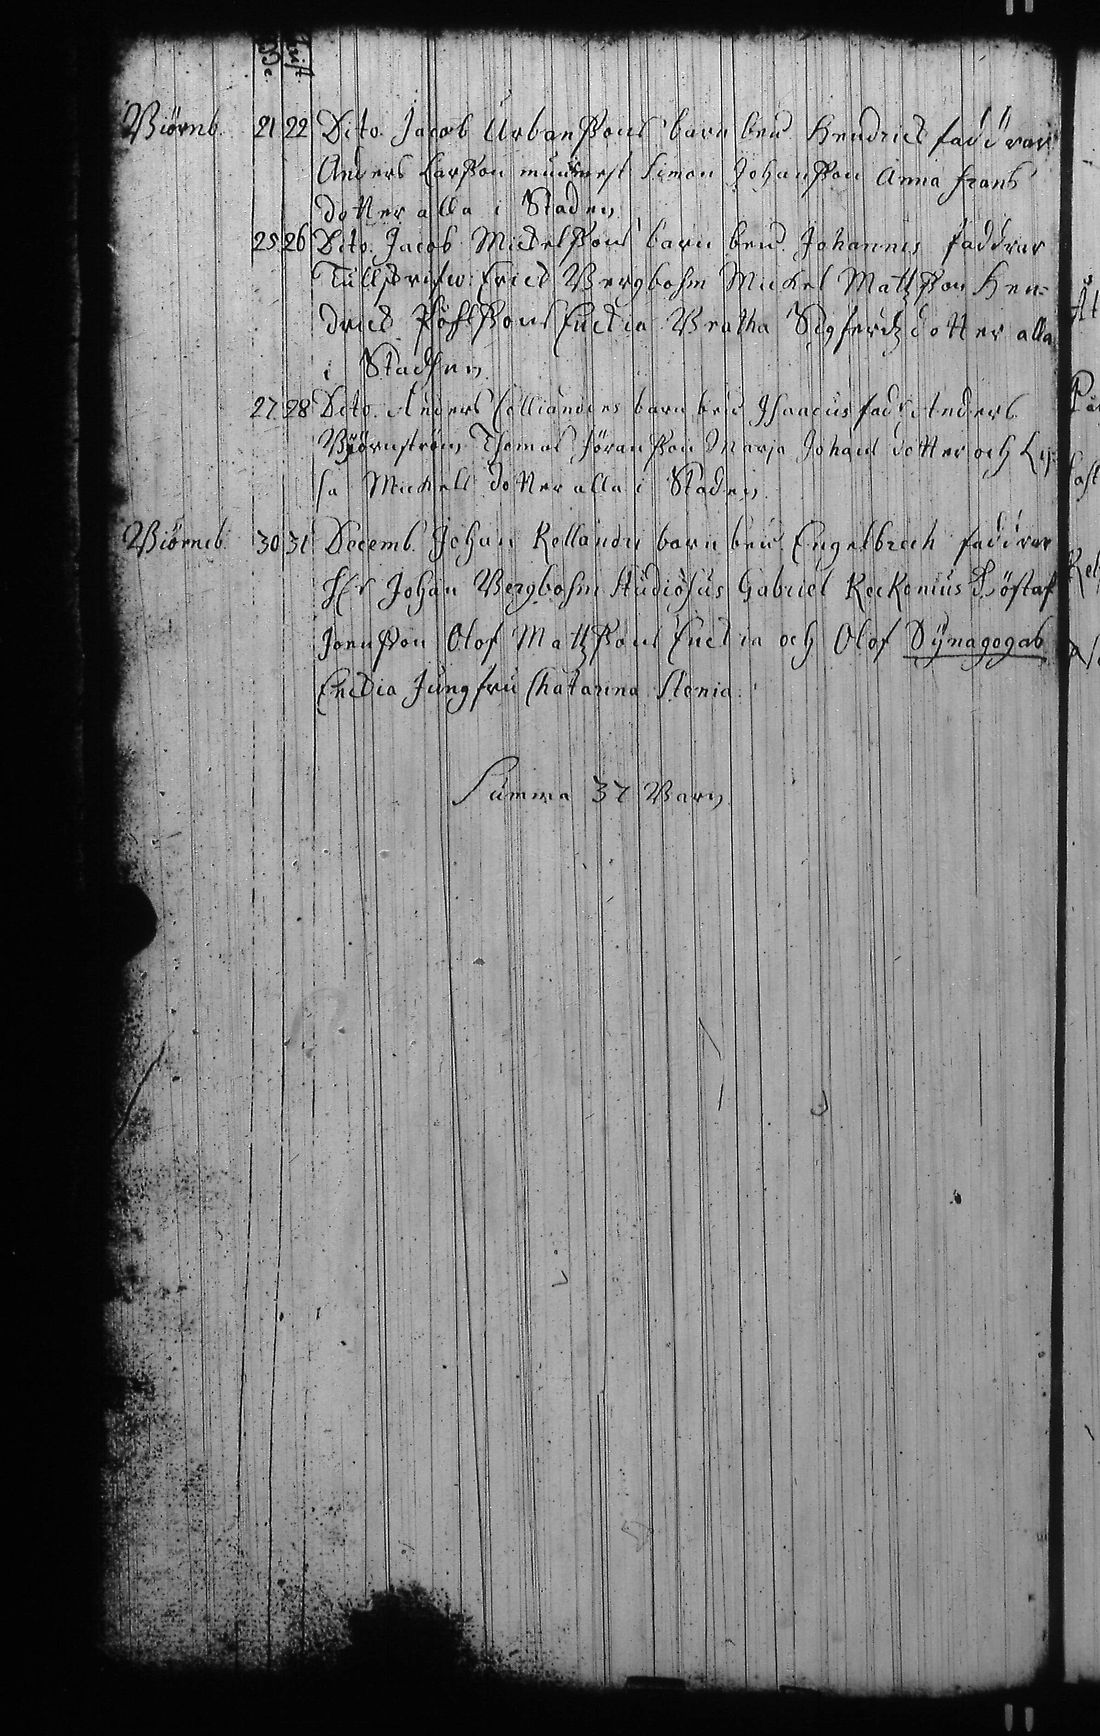 Biörneb. 21 22 Dito. Jacob Urbanssons barn ben. Hendrich faddrar
Anders Larsson Simon Johansson Anna Frans
dotter alla i Staden
25 26 Dito. Jacob Mickelssons barn ben. Johannes faddrar
Tullskrifw: Erich Bergbohm Mickel Mattsson Hen-
drich Påhlssons Enckia Beatha Sigfredz dotter alla
i Stadhen
27 28 Dito. Anders barn ben fad: Anders
Björnström Thomas Jöransson Maria Johans dotter och Li-
sa Mickels dotter alla i Staden
Biörneb. 30 31 Decemb. Johan Kellander barn ben. Engelbrech faddrar
Hr Johan Bergbohm Studiosus Gabriel Keckonius Göstaf
Jöensson Olof Mattssons Enckia och Olof Synagogas
Enckia Jungfru Chatarina Stenia.
Summa 37 Barn